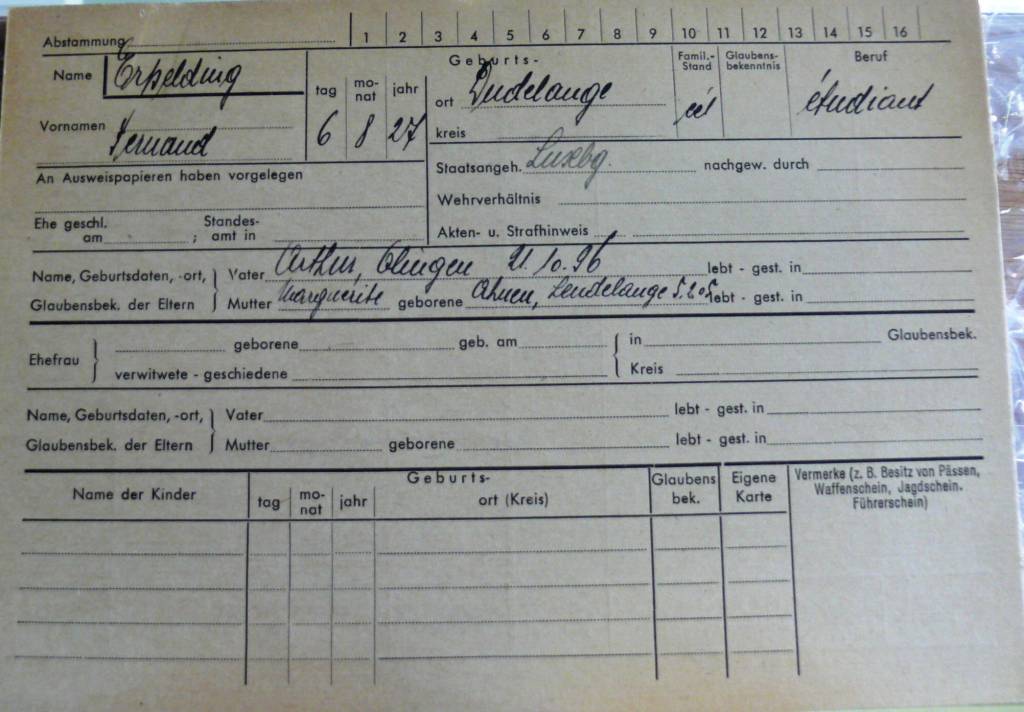 Abstammung 1 2 3 4 5 6 7 8 9 10 11 12 13 14 15 16
Name Erpelding
Vornamen Fernand
tag mo-nat jahr
6 8 27
Geburts-
ort Dudelange
kreis
Famil.-Stand
cél
Glaubens-bekenntnis
Beruf
étudiant
An Ausweispapieren haben vorgelegen
Staatsangeh. Luxbg. nachgew. durch
Wehrverhältnis
Ehe geschl. am ; Standes-amt in
Akten- u. Strafhinweis
Name, Geburtsdaten, -ort, } Vater Arthur, Olingen 21.10.96 lebt - gest. in
Glaubensbek. der Eltern } Mutter Marguerite geborene lebt - gest. in
Ehefrau } geborene geb. am { in Glaubensbek.
verwitwete - geschiedene Kreis
Name, Geburtsdaten, -ort, } Vater lebt - gest. in
Glaubensbek. der Eltern } Mutter geborene lebt - gest. in
Name der Kinder
Geburts-
tag mo-nat jahr ort (Kreis)
Glaubens bek.
Eigene Karte
Vermerke (z. B. Besitz von Pässen,
Waffenschein, Jagdschein.
Führerschein)